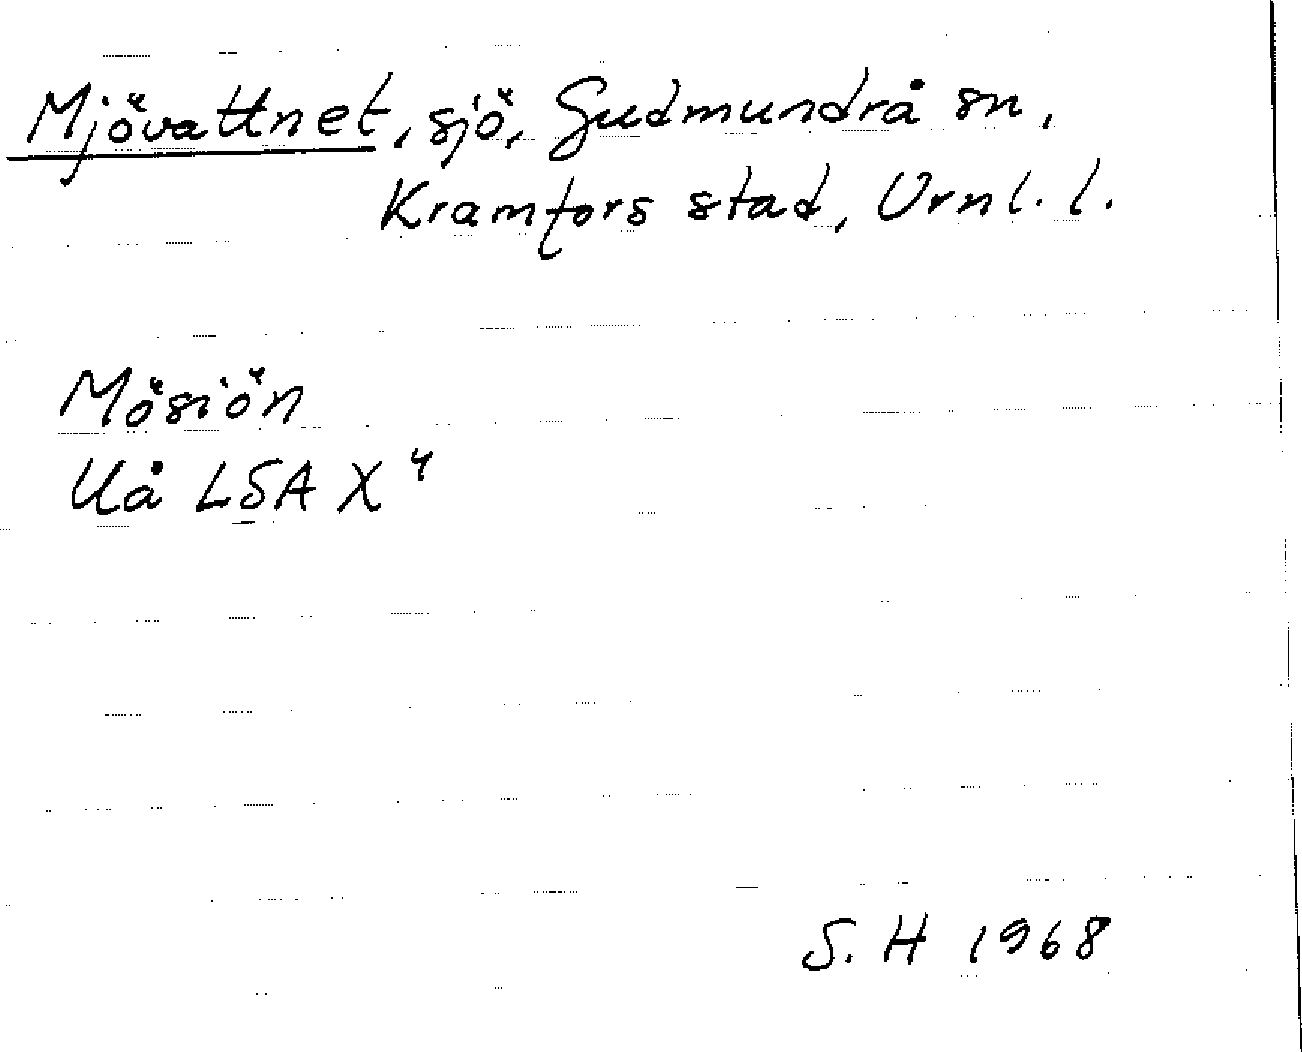 Mjövattnet, sjö, Gudmundrå sn,
Kramfors stad, Vrnl. l.
Mösiön
Uå LSA X 4
S. H 1968